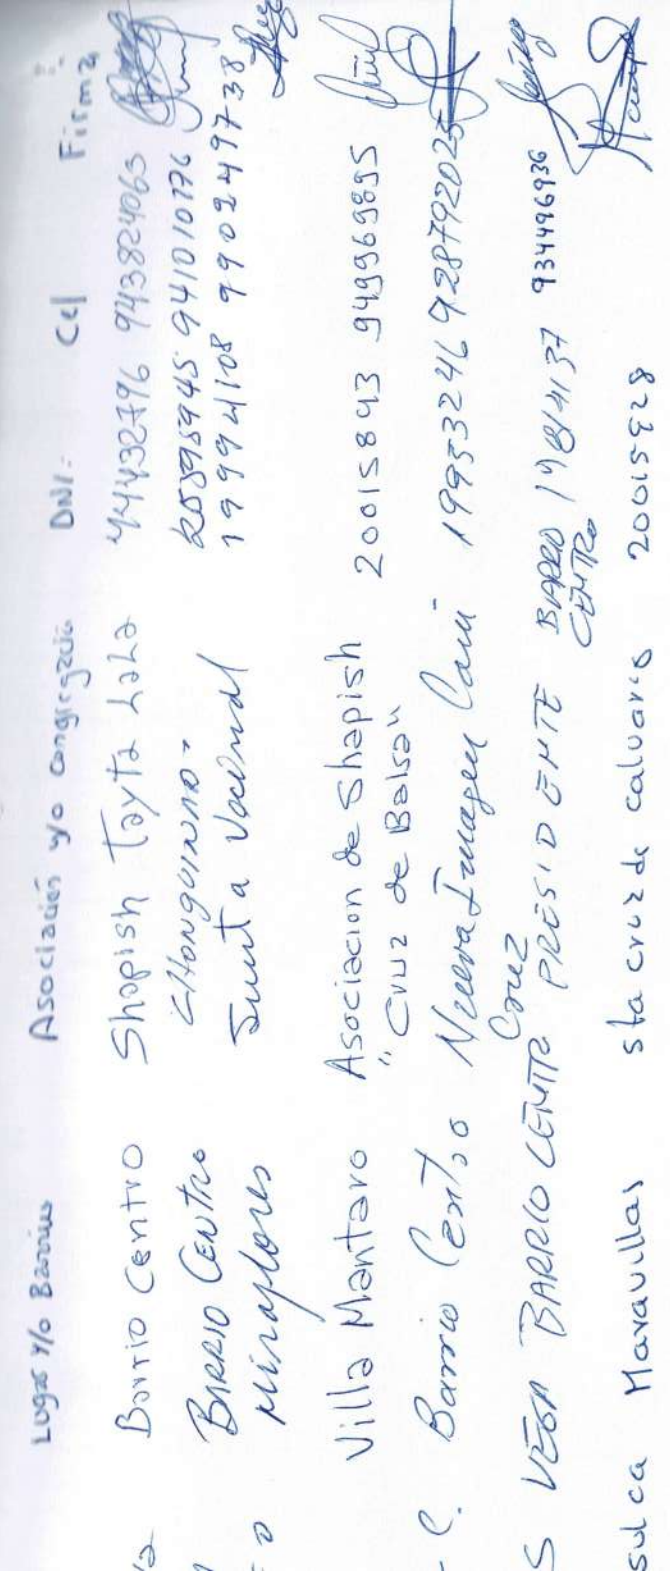 Lugar y/o Barrios Asociación y/o Congregación DNI: Cel Firma
Barrio Centro Shapish Tayta Lala 44432796 943824063
BARRIO CENTRO CHONGUINOHO - 941010776
Miraflores Junta Vecinal 19994108 990249738
Villa Mantaro Asociacion de Shapish 20015843 949969895
"Cruz de Balsa"
C. Barrio Centro Nueva Imagen Cani 19953246 928792025
Cruz
S VEGA BARRIO CENTRO PRESIDENTE BARRIO 934496936
CENTRO
sulca Maravillas sta cruz de calvario 20015928